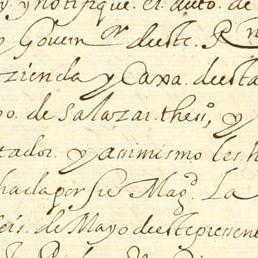 y notifique. el auto. de
y Govern.or deeste. Rn
zienda y Caxa. deesta
po. de salazar. theso. y
tador. y asimismo les h
hada por su Mag.d La
seis. de Mayo deeste presen